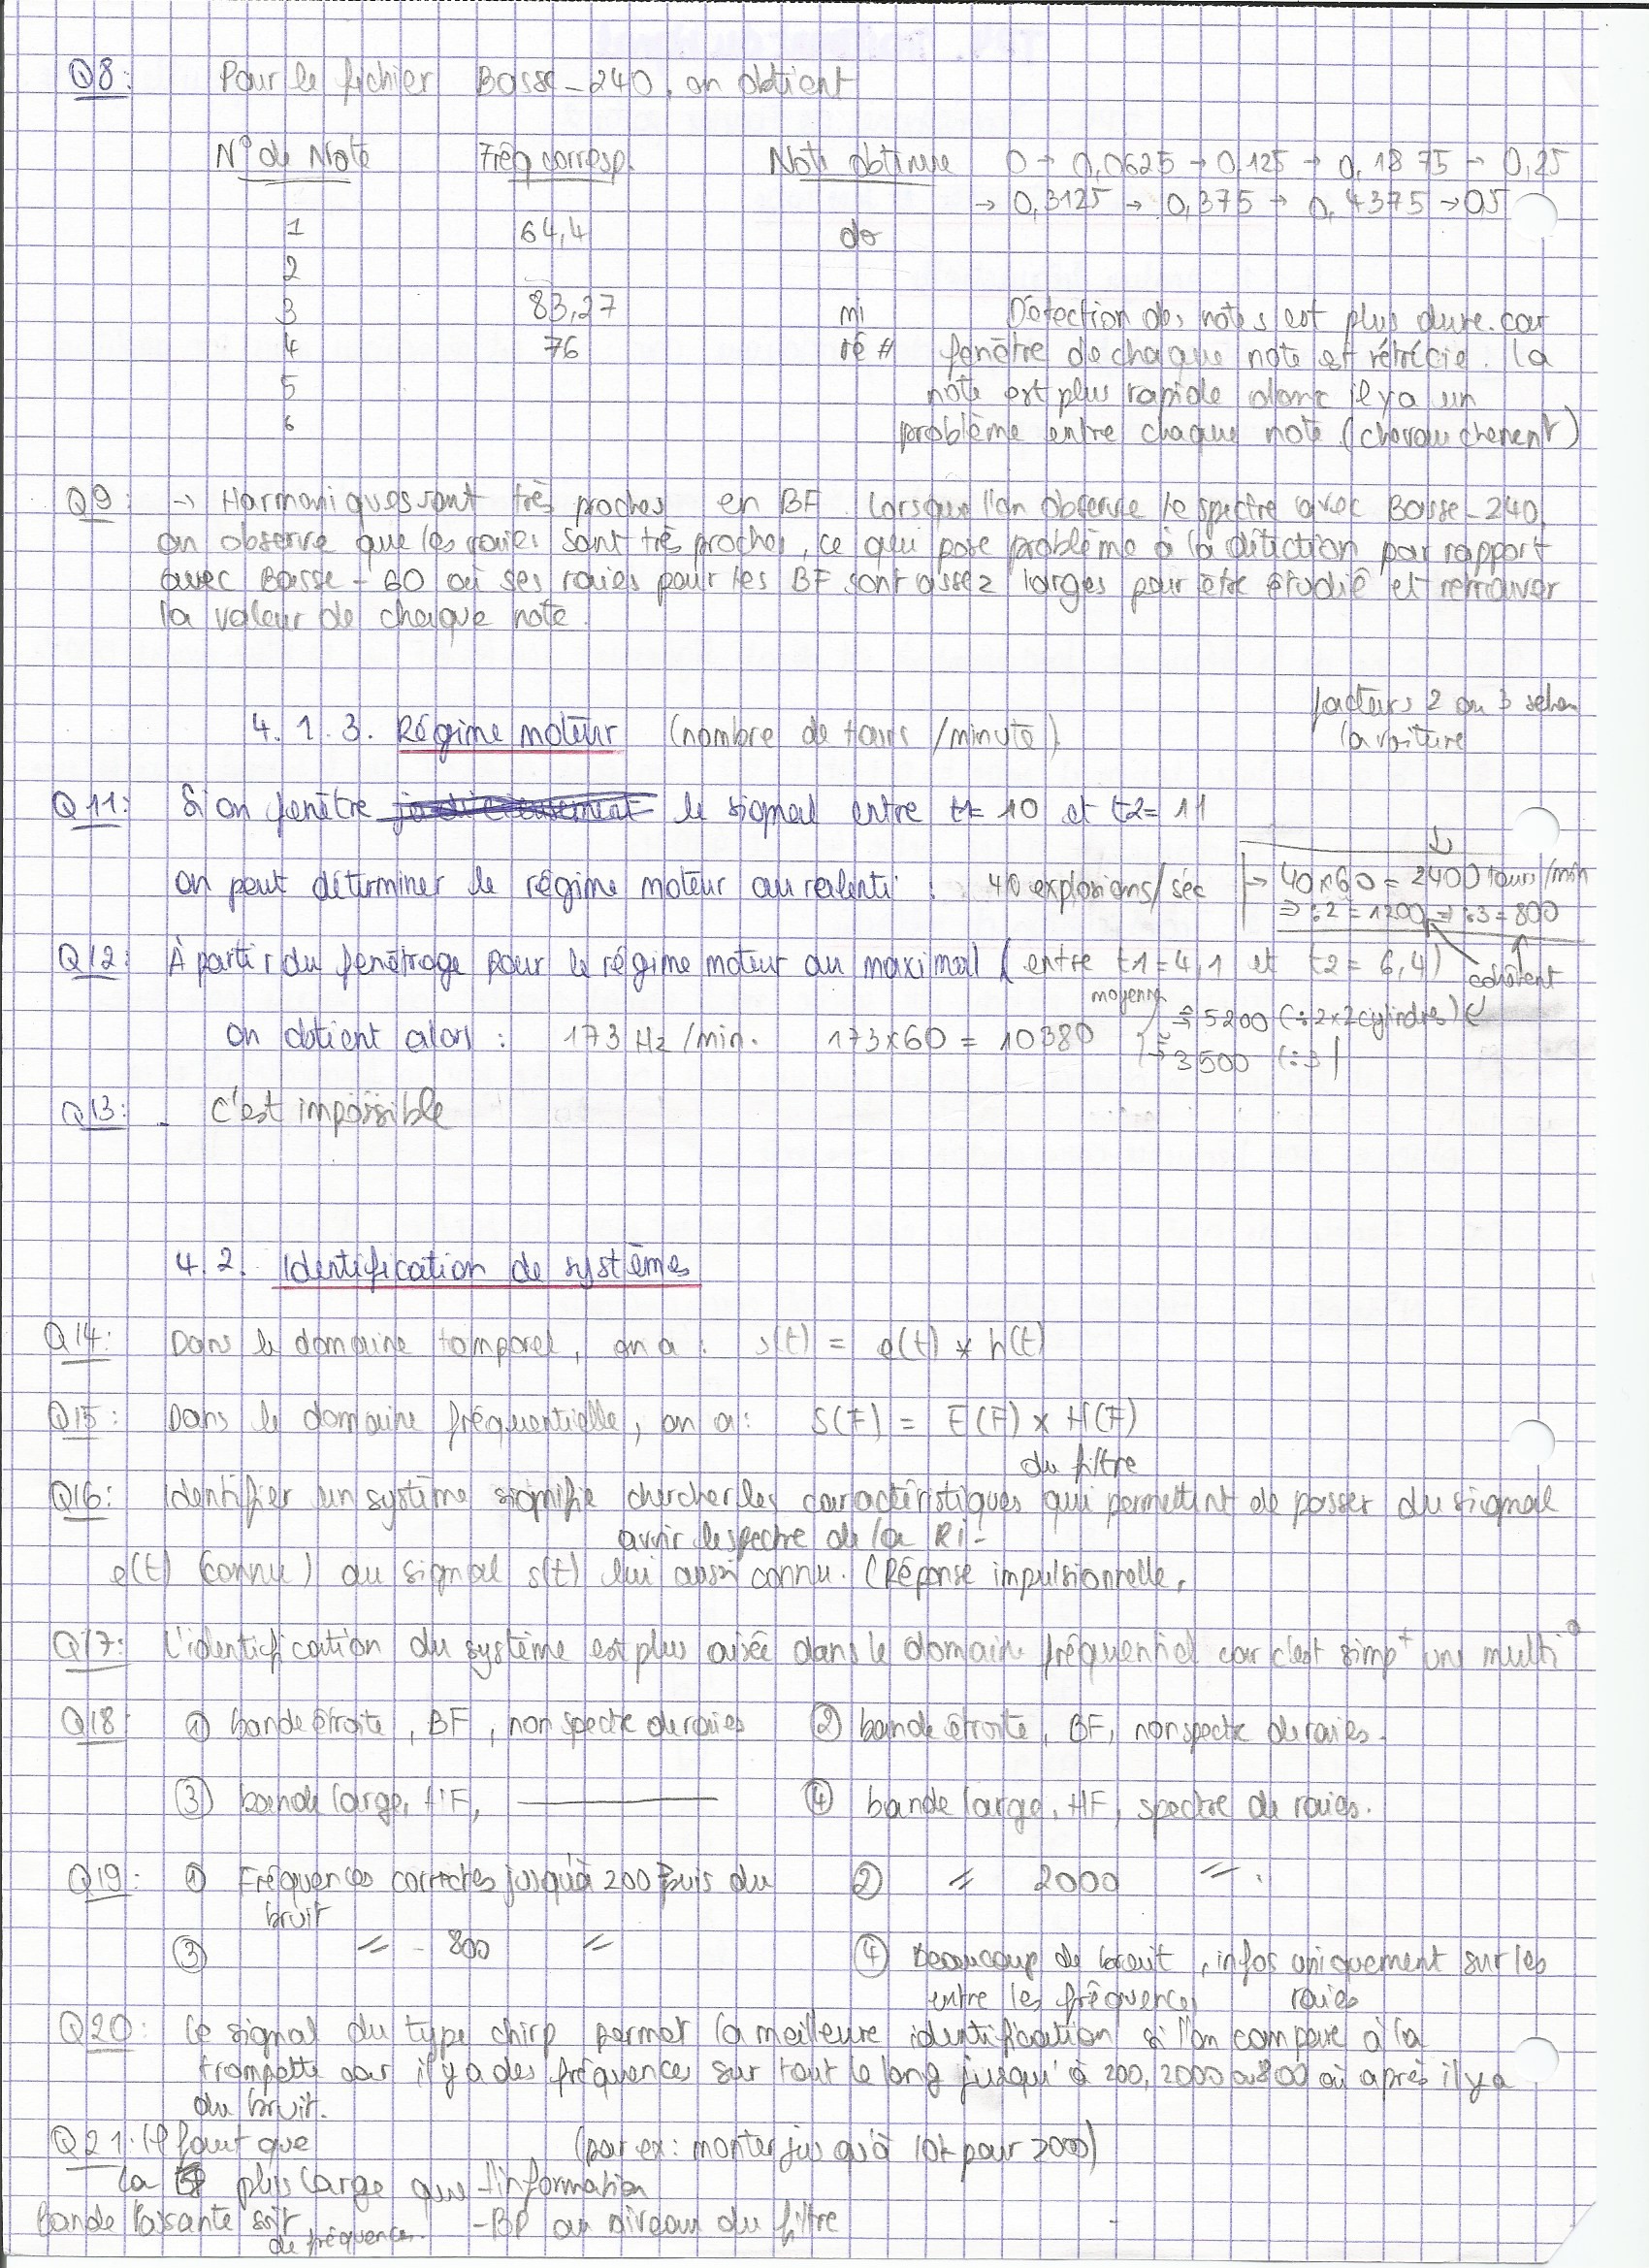 Q8: Pour le fichier Basse-240, on obtient
N° de Note Fréq corresp. Note obtenue 0 → 0,0625 → 0,125 → 0,1875 → 0,25
→ 0,3125 → 0,375 → 0,4375 → 0,5
1 64,4 do
2
3 83,27 mi Détection des notes est plus dure car
4 76 ré # fenêtre de chaque note est rétrécie. la
5 note est plus rapide donc il y a un
6 problème entre chaque note (chevauchement)
Q9: → Harmoniques sont très proches en BF. Lorsque l'on observe le spectre avec Basse-240,
on observe que les raies sont très proches, ce qui pose problème à la détection par rapport
avec Basse-60 où ses raies pour les BF sont assez larges pour être étudié et retrouver
la valeur de chaque note.
facteurs 2 ou 3 selon
la voiture
4.1.3. Régime moteur (nombre de tours /minute)
Q11: Si on fenêtre le signal entre t1= 10 et t2= 11
on peut déterminer le régime moteur au ralenti : 40 explosions/sec → 40×60 = 2400 tours/min
⇒ :2 = 1200 ⇒ :3 = 800
Q12: À partir du fenêtrage pour le régime moteur au maximal (entre t1=4,1 et t2= 6,4) cohérent
moyenne
On obtient alors : 173 Hz/min. 173×60 = 10380 ≃ 5200 (÷2×2cylindres)
≃ 3500 (÷3)
Q13: C'est impossible
4.2. Identification de systèmes
Q14: Dans le domaine temporel, on a : s(t) = e(t) * h(t)
Q15: Dans le domaine fréquentielle, on a: S(F) = E(F) × H(F)
du filtre
Q16: Identifier un système signifie chercher les caractéristiques qui permettent de passer du signal
avoir le spectre de la RI-
e(t) (connu) au signal s(t) lui aussi connu. (Réponse impulsionnelle,
Q17: L'identification du système est plus aisée dans le domaine fréquentiel car c'est simp^t une multi°
Q18 ① bande étroite, BF, non spectre de raies ② bande étroite, BF, non spectre de raies.
③ bande large, HF, ———— ④ bande large, HF, spectre de raies.
Q19: ① Fréquences correctes jusqu'à 200 puis du ② // 2000 // .
bruit
③ // - 800 // ④ Beaucoup de bruit, infos uniquement sur les
entre les fréquences raies
Q20: Le signal du type chirp permet la meilleure identification si l'on compare à la
trompette car il y a des fréquences sur tout le long jusqu'à 200, 2000 ou 800 où après il y a
du bruit.
Q21: Il faut que (par ex: monter jusqu'à 10k pour 2000)
la plus large que l'information
Bande Passante soit - BP au niveau du filtre
de fréquences.